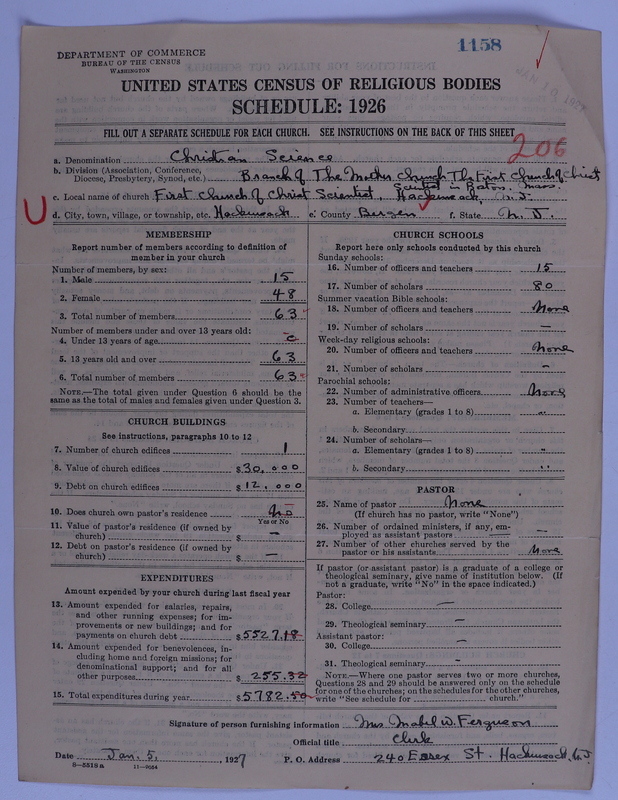 1158
DEPARTMENT OF COMMERCE
BUREAU OF THE CENSUS
WASHINGTON
UNITED STATES CENSUS OF RELIGIOUS BODIES
SCHEDULE: 1926
FILL OUT A SEPARATE SCHEDULE FOR EACH CHURCH. SEE INSTRUCTIONS ON THE BACK OF THIS SHEET
206
a. Denomination Christian Science
b. Division (Association, Conference, Diocese, Presbytery, Synod, etc.) Branch of The Mother Church The First Church of Christ
Scientist in Boston. Mass.
c. Local name of church First Church of Christ Scientist, Hackensack, N.J.
U
d. City, town, village, or township, etc. Hackensack e. County Bergen f. State N.J.
MEMBERSHIP
Report number of members according to definition of
member in your church
Number of members, by sex:
1. Male 15
2. Female 48
3. Total number of members 63
Number of members under and over 13 years old:
4. Under 13 years of age 0
5. 13 years old and over 63
6. Total number of members 63
NOTE.—The total given under Question 6 should be
same as the total of males and females given under Question 3.
CHURCH BUILDINGS
See instructions, paragraphs 10 to 12
7. Number of church edifices 1
8. Value of church edifices $30,000
9. Debt on church edifices $12,000
10. Does church own pastor's residence No
Yes or No
11. Value of pastor's residence (if owned by
church) $ —
12. Debt on pastor's residence (if owned by
church) $ —
EXPENDITURES
Amount expended by your church during last fiscal year
13. Amount expended for salaries, repairs,
and other running expenses; for im-
provements or new buildings; and for
payments on church debt $5527.18
14. Amount expended for benevolences, in-
cluding home and foreign missions; for
denominational support; and for all
other purposes $255.32
15. Total expenditures during year $5782.50
CHURCH SCHOOLS
Report here only schools conducted by this church
Sunday schools:
16. Number of officers and teachers 15
17. Number of scholars 80
Summer vacation Bible schools:
18. Number of officers and teachers None
19. Number of scholars —
Week-day religious schools:
20. Number of officers and teachers None
21. Number of scholars -
Parochial schools:
22. Number of administrative officers None
23. Number of teachers—
a. Elementary (grades 1 to 8) "
b. Secondary
24. Number of scholars—
a. Elementary (grades 1 to 8) "
b. Secondary "
PASTOR
25. Name of pastor None
(If church has no pastor, write "None")
26. Number of ordained ministers, if any, em-
ployed as assistant pastors —
27. Number of other churches served by the
pastor or his assistants None
If pastor (or assistant pastor) is a graduate of a college or
theological seminary, give name of institution below. (If
not a graduate, write "No" in the space indicated.)
Pastor:
28. College —
29. Theological seminary —
Assistant pastor:
30. College —
31. Theological seminary —
NOTE.—Where one pastor serves two or more churches,
Questions 28 and 29 should be answered only on the schedule
for one of the churches; on the schedules for the other churches,
write "See schedule for church."
Signature of person furnishing information Mrs. Mabel W. Ferguson
Official title Clerk
Date Jan. 5, 1927 P. O. Address 240 Essex St. Hackensack, N.J.
8—5518a 11—9054